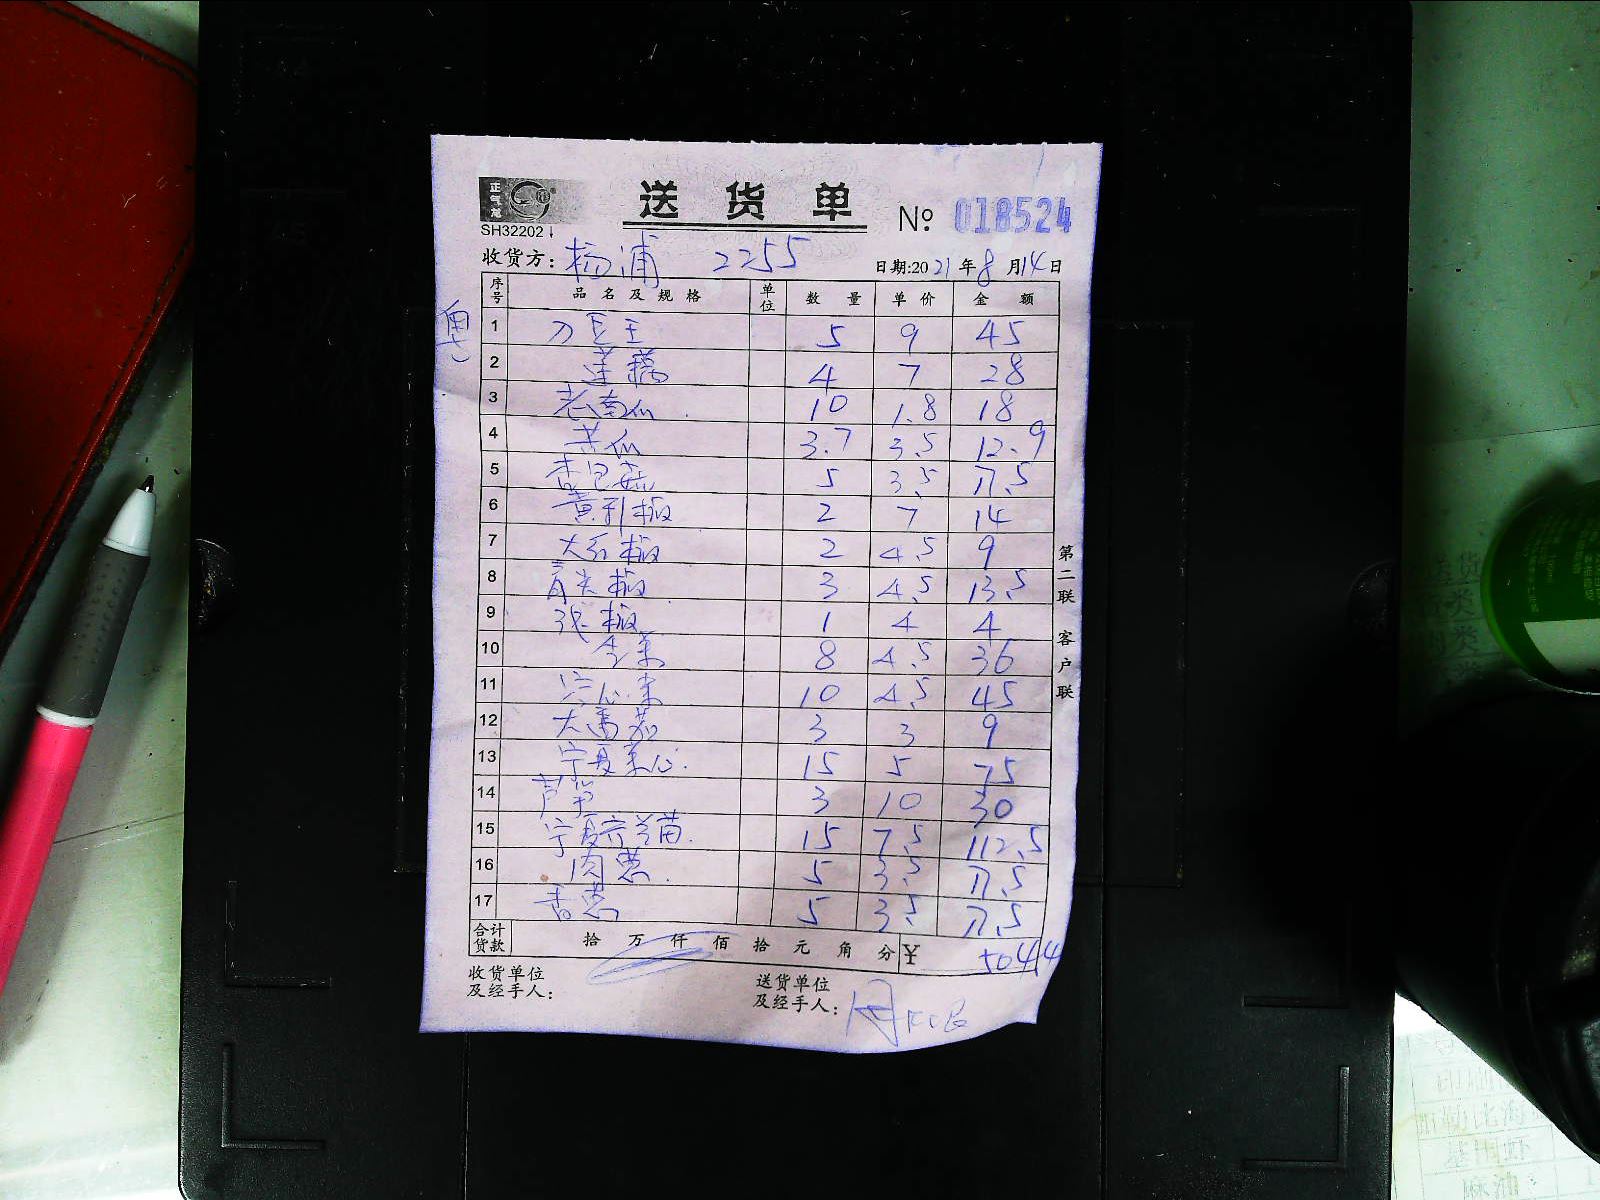 正气龙
SH32202
送 货 单
№: 018524
收货方: 杨浦 2255
日期:2021年8月14日
序号 品名及规格 单位 数量 单价 金额
1 刀豆王 5 9 45
2 莲藕 4 7 28
3 老南瓜 10 1.8 18
4 苦瓜 3.7 3.5 12.9
5 杏包菇 5 3.5 17.5
6 黄彩椒 2 7 14
7 大红椒 2 4.5 9
8 青尖椒 3 4.5 13.5
9 椒 1 4 4
10 8 4.5 36
11 空心菜 10 4.5 45
12 大番茄 3 3 9
13 宁夏菜心 15 5 75
14 芦笋 3 10 30
15 宁夏芥兰苗 15 7.5 112.5
16 肉葱 5 3.5 17.5
17 香葱 5 3.5 17.5
合计货款 拾 万 仟 佰 拾 元 角 分 ¥ 504.4
收货单位及经手人:
送货单位及经手人:
第二联 客户联